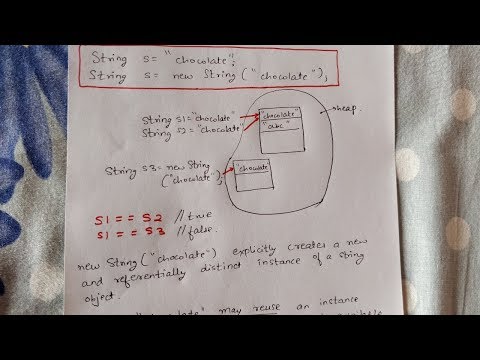 String s= "chocolate";
String s= new String ("chocolate");
String s1="chocolate"
String s2="chocolate"
"chocolate"
"abc"
heap.
String s3= new String
("chocolate");
"chocolate"
S1 == S2 // true
S1 == S3 // false.
new String ("chocolate") explicitly creates a new
and referentially distinct instance of a string
object.
may reuse an instance